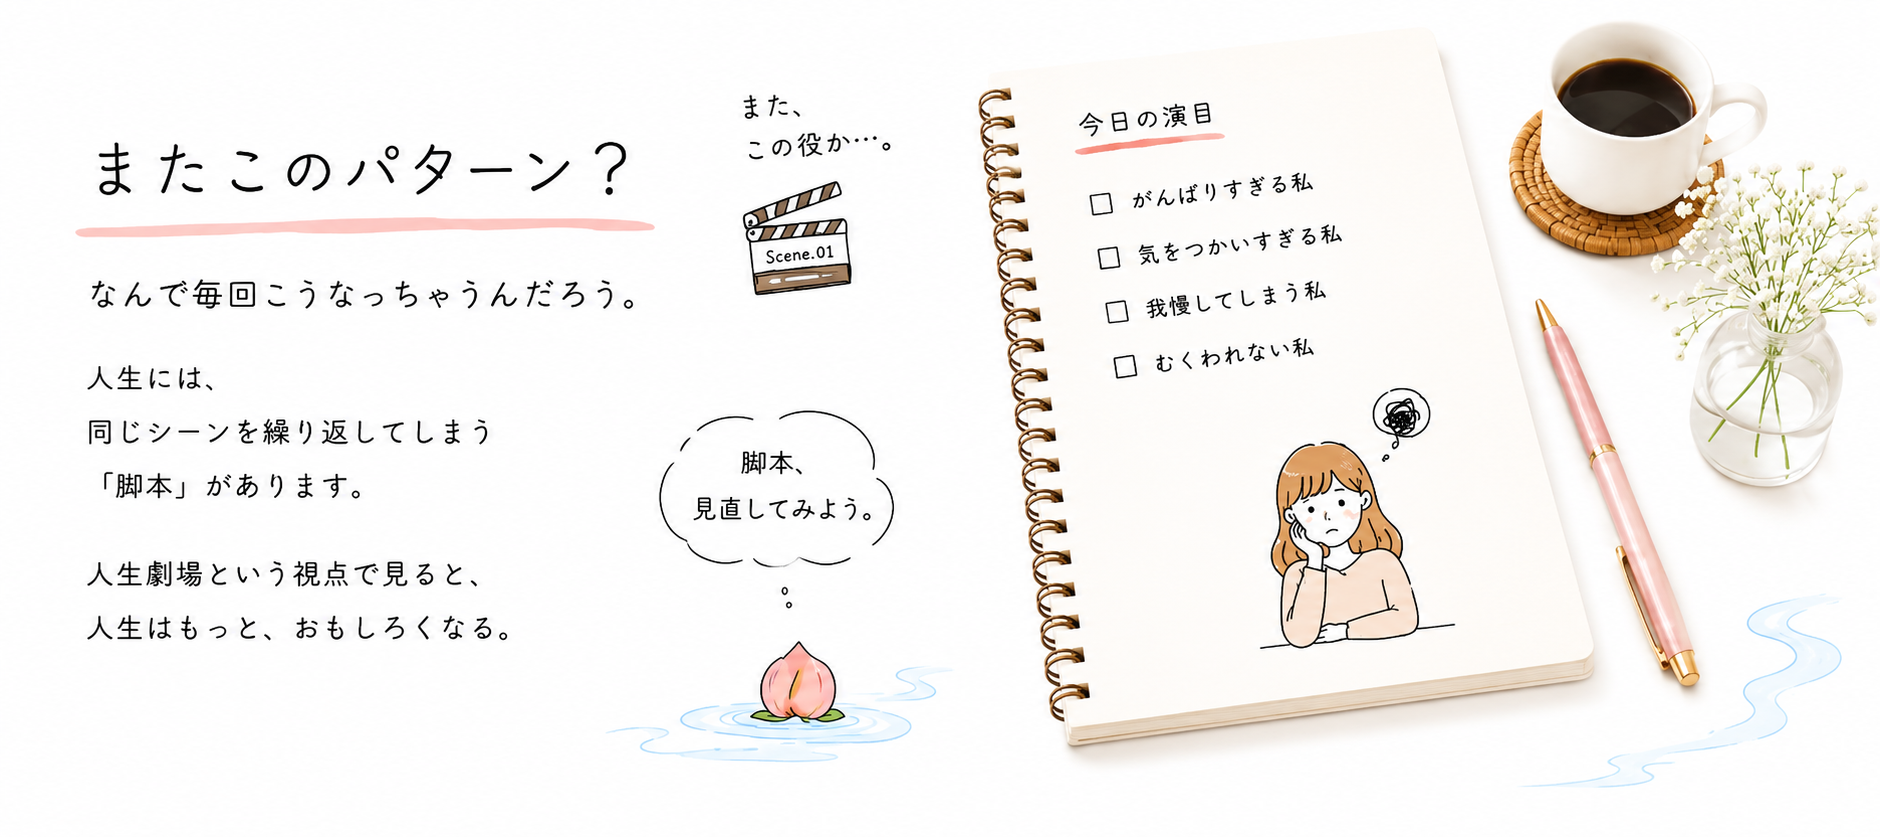 またこのパターン？
なんで毎回こうなっちゃうんだろう。
人生には、
同じシーンを繰り返してしまう
「脚本」があります。
人生劇場という視点で見ると、
人生はもっと、おもしろくなる。
また、
この役か…。
Scene.01
脚本、
見直してみよう。
今日の演目
がんばりすぎる私
気をつかいすぎる私
我慢してしまう私
むくわれない私